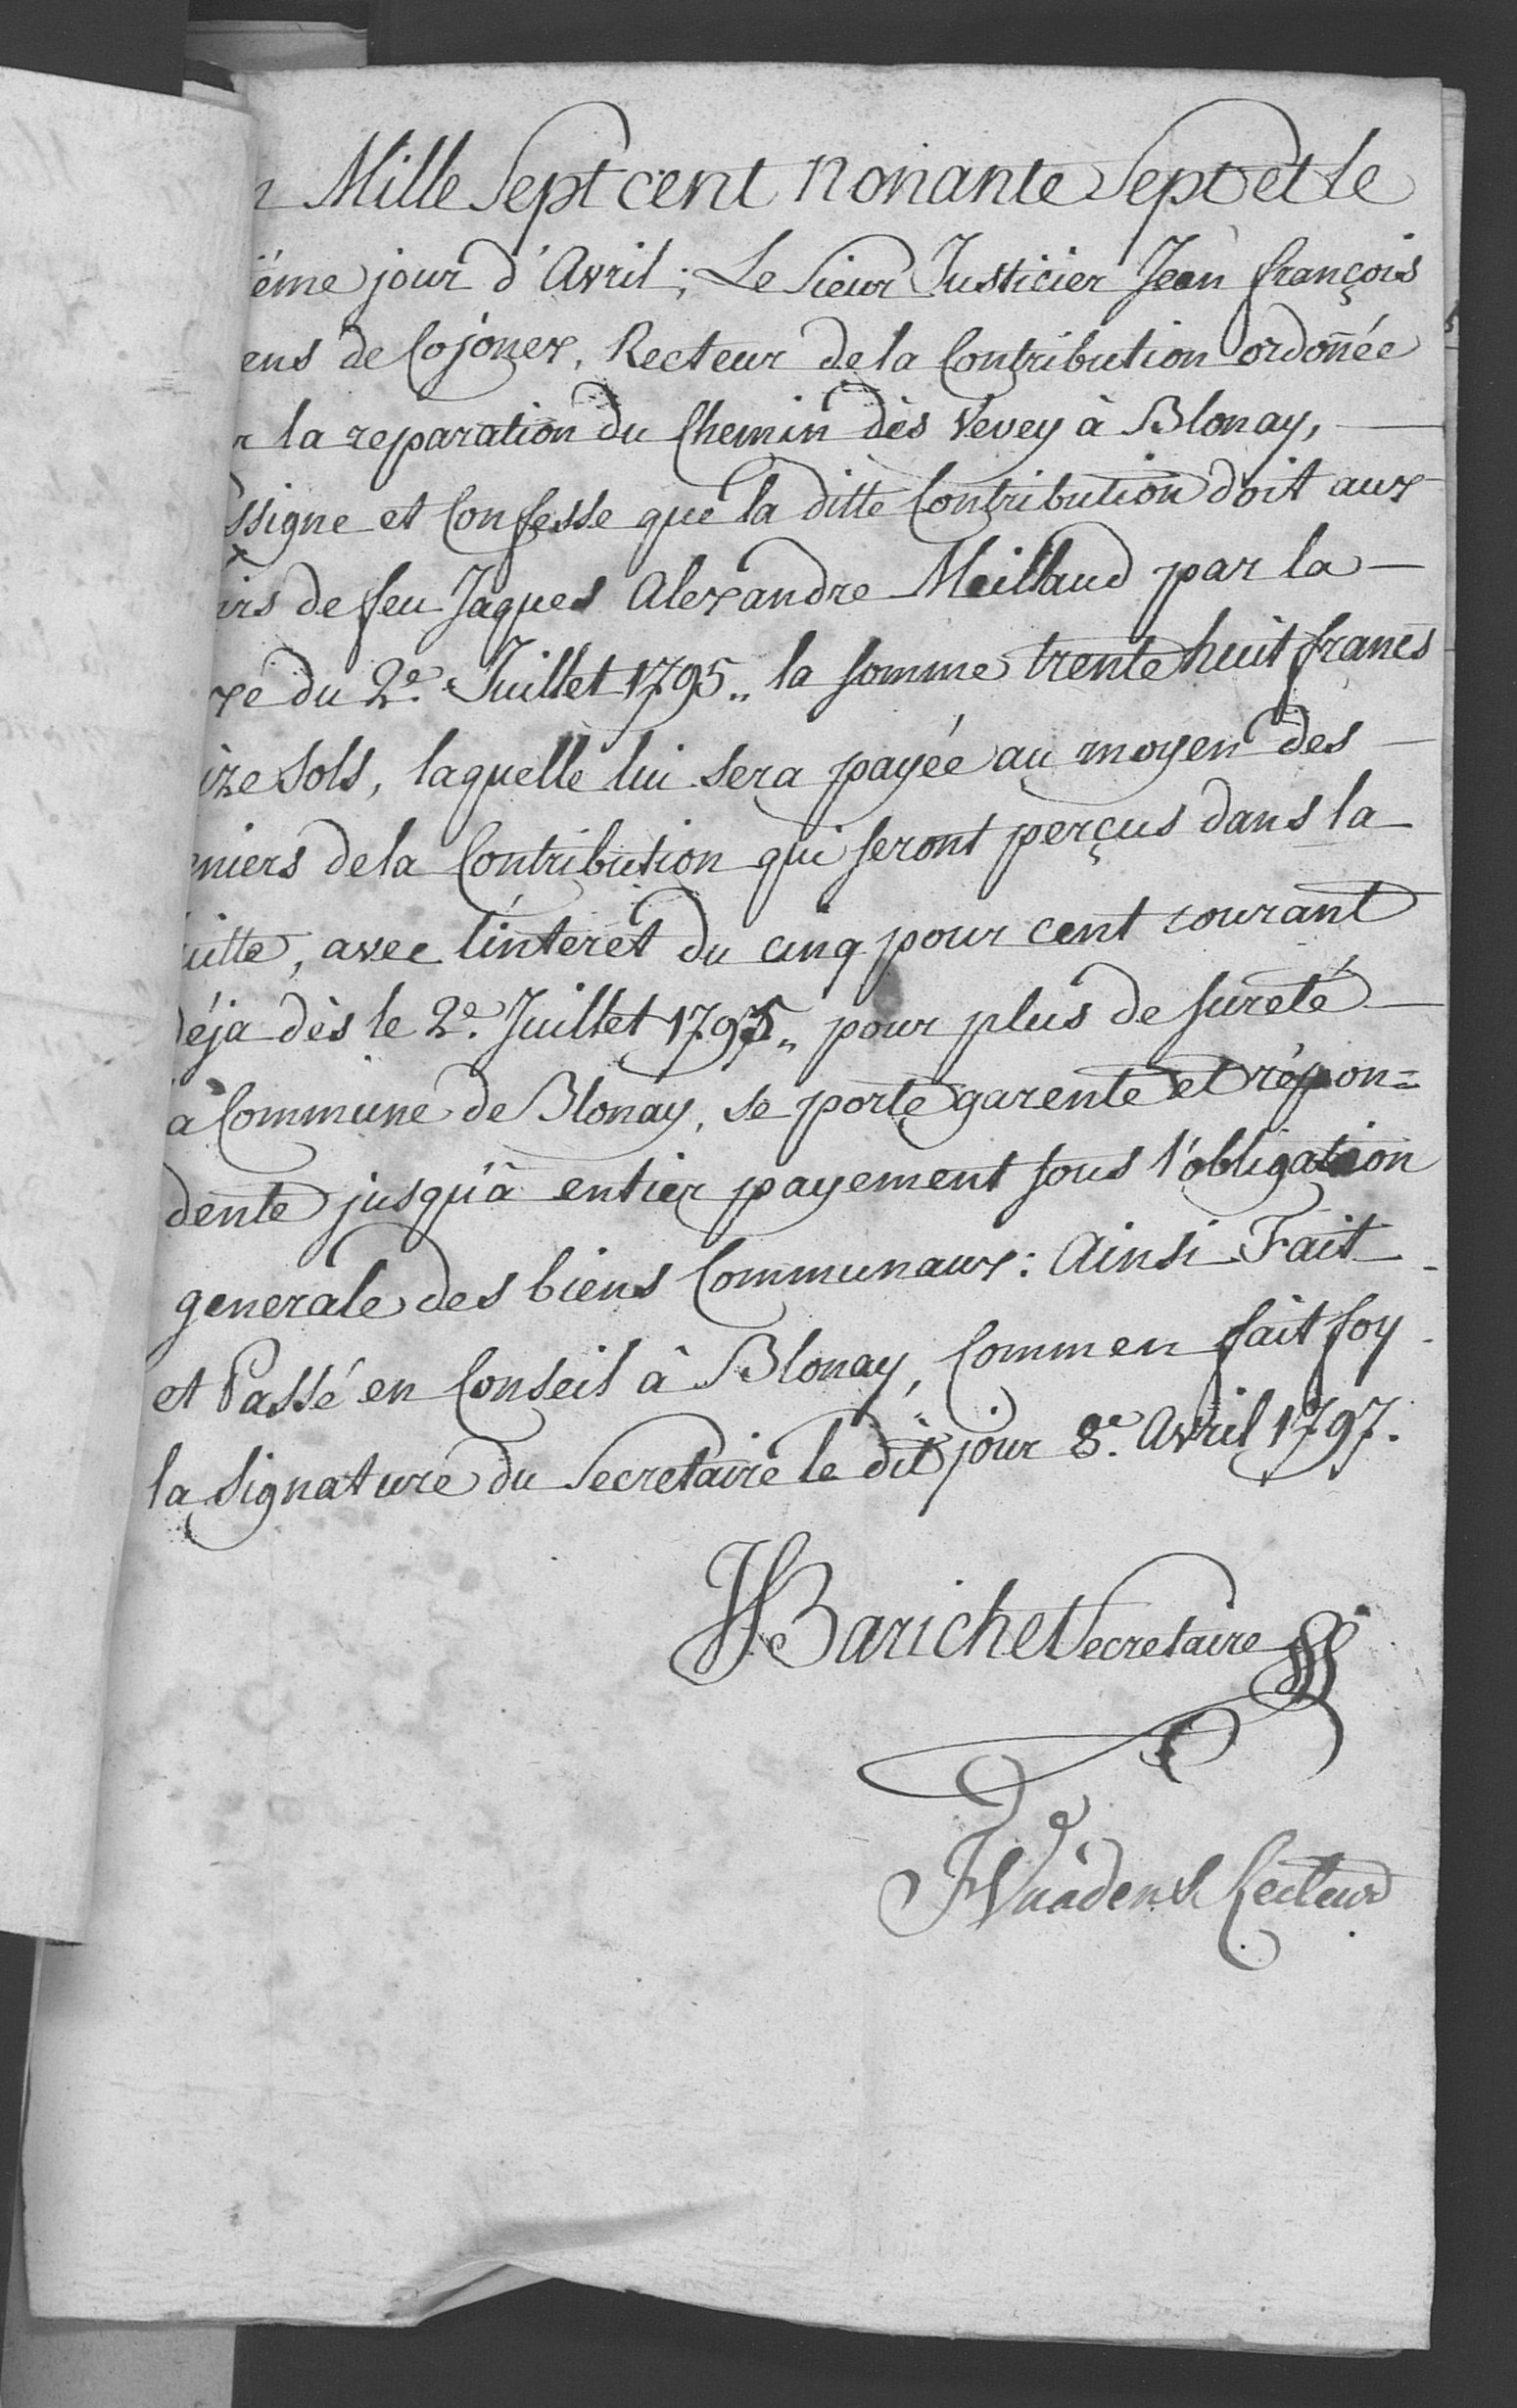 Mille Sept cent nonante Sept et le
iéme jour d'Avril; Le Sieur Justicier Jean françois
ens de Cojonex, Recteur de la Contribution ordoñée
r la reparation du Chemin dès Vevey à Blonay,
ssigne et Confesse que la ditte Contribution doit aux
irs de feu Jaques Alexandre Meillaud par la
xé du 2e. Juillet 1795„ la somme trente huit francs
ize sols, laquelle lui sera payée au moyen des
eniers de la Contribution qui seront perçus dans la
uitte, avec l'interet du cinq pour cent courant
déja dès le 2e. Juillet 1795„ pour plus de sureté
a Commune de Blonay, se porte garente et répon=
dente jusqu'à entier payement sous l'obligation
generale des biens Communaux: Ainsi Fait
et Passé en Conseil à Blonay, Comm en fait foy
la signature du Secretaire le dit jour 8e. Avril 1797.
Barichet Secretaire
Vuadens Recteur